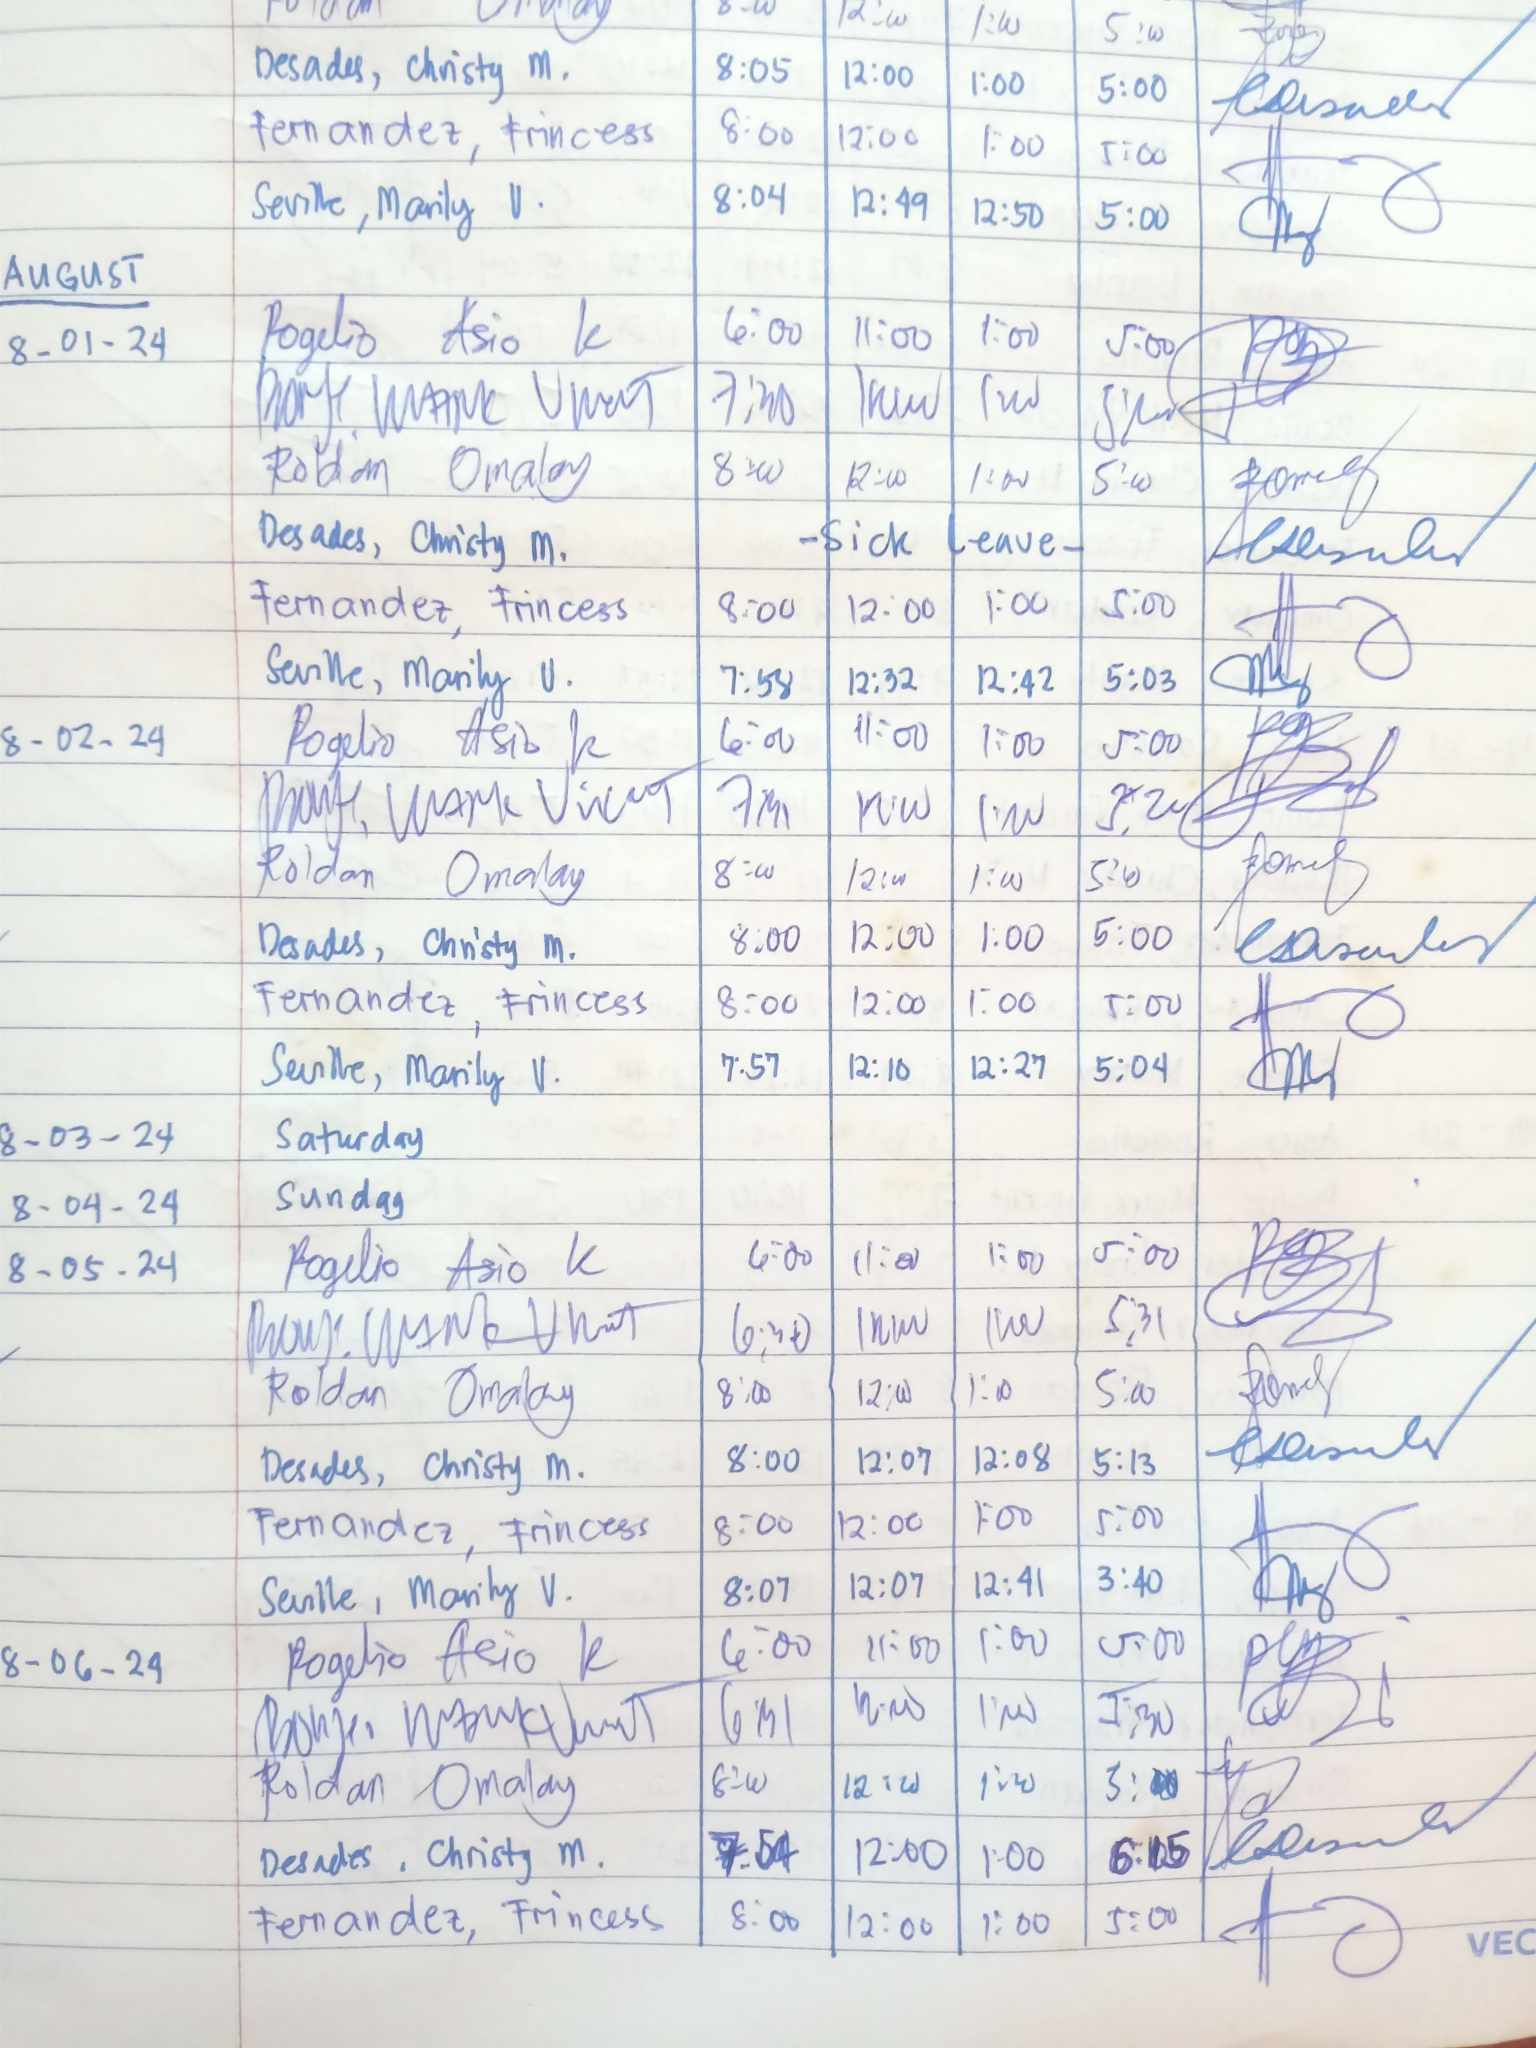 Roldan Omalay
Desades, Christy M. 8:05 12:00 1:00 5:00
Fernandez, Frincess 8:00 12:00 1:00 5:00
Seville, Marily V. 8:04 12:49 12:50 5:00
AUGUST
8-01-24 Rogelio Asio K 6:00 11:00 1:00 5:00
MARK 7:30
Roldan Omalay 8:00 12:00 1:00 5:00
Desades, Christy M. -Sick Leave-
Fernandez, Frincess 8:00 12:00 1:00 5:00
Seville, Marily V. 7:58 12:32 12:42 5:03
8-02-24 Rogelio Asio K 6:00 11:00 1:00 5:00
MARK
Roldan Omalay 8:00 12:00 1:00 5:00
Desades, Christy M. 8:00 12:00 1:00 5:00
Fernandez, Frincess 8:00 12:00 1:00 5:00
Seville, Marily V. 7:57 12:10 12:27 5:04
8-03-24 Saturday
8-04-24 Sunday
8-05-24 Rogelio Asio K 6:00 11:00 1:00 5:00
MARK 5:31
Roldan Omalay 8:00 12:00 1:00 5:00
Desades, Christy M. 8:00 12:07 12:08 5:13
Fernandez, Frincess 8:00 12:00 1:00 5:00
Seville, Marily V. 8:07 12:07 12:41 3:40
8-06-24 Rogelio Asio K 6:00 11:00 1:00 5:00
MARK 6:31
Roldan Omalay 8:00 12:00 1:00
Desades, Christy M. 12:00 1:00
Fernandez, Frincess 8:00 12:00 1:00 5:00
VEC